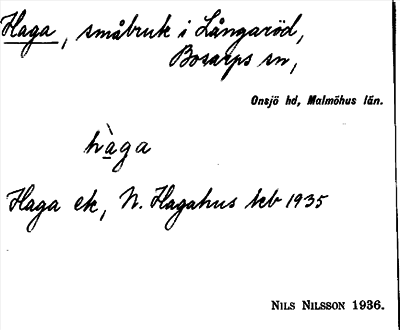 Haga, småbruk i Långaröd,
Bosarps sn,
Onsjö hd, Malmöhus län.
hàga
Haga ek, N. Hagahus kb 1935
NILS NILSSON 1936.